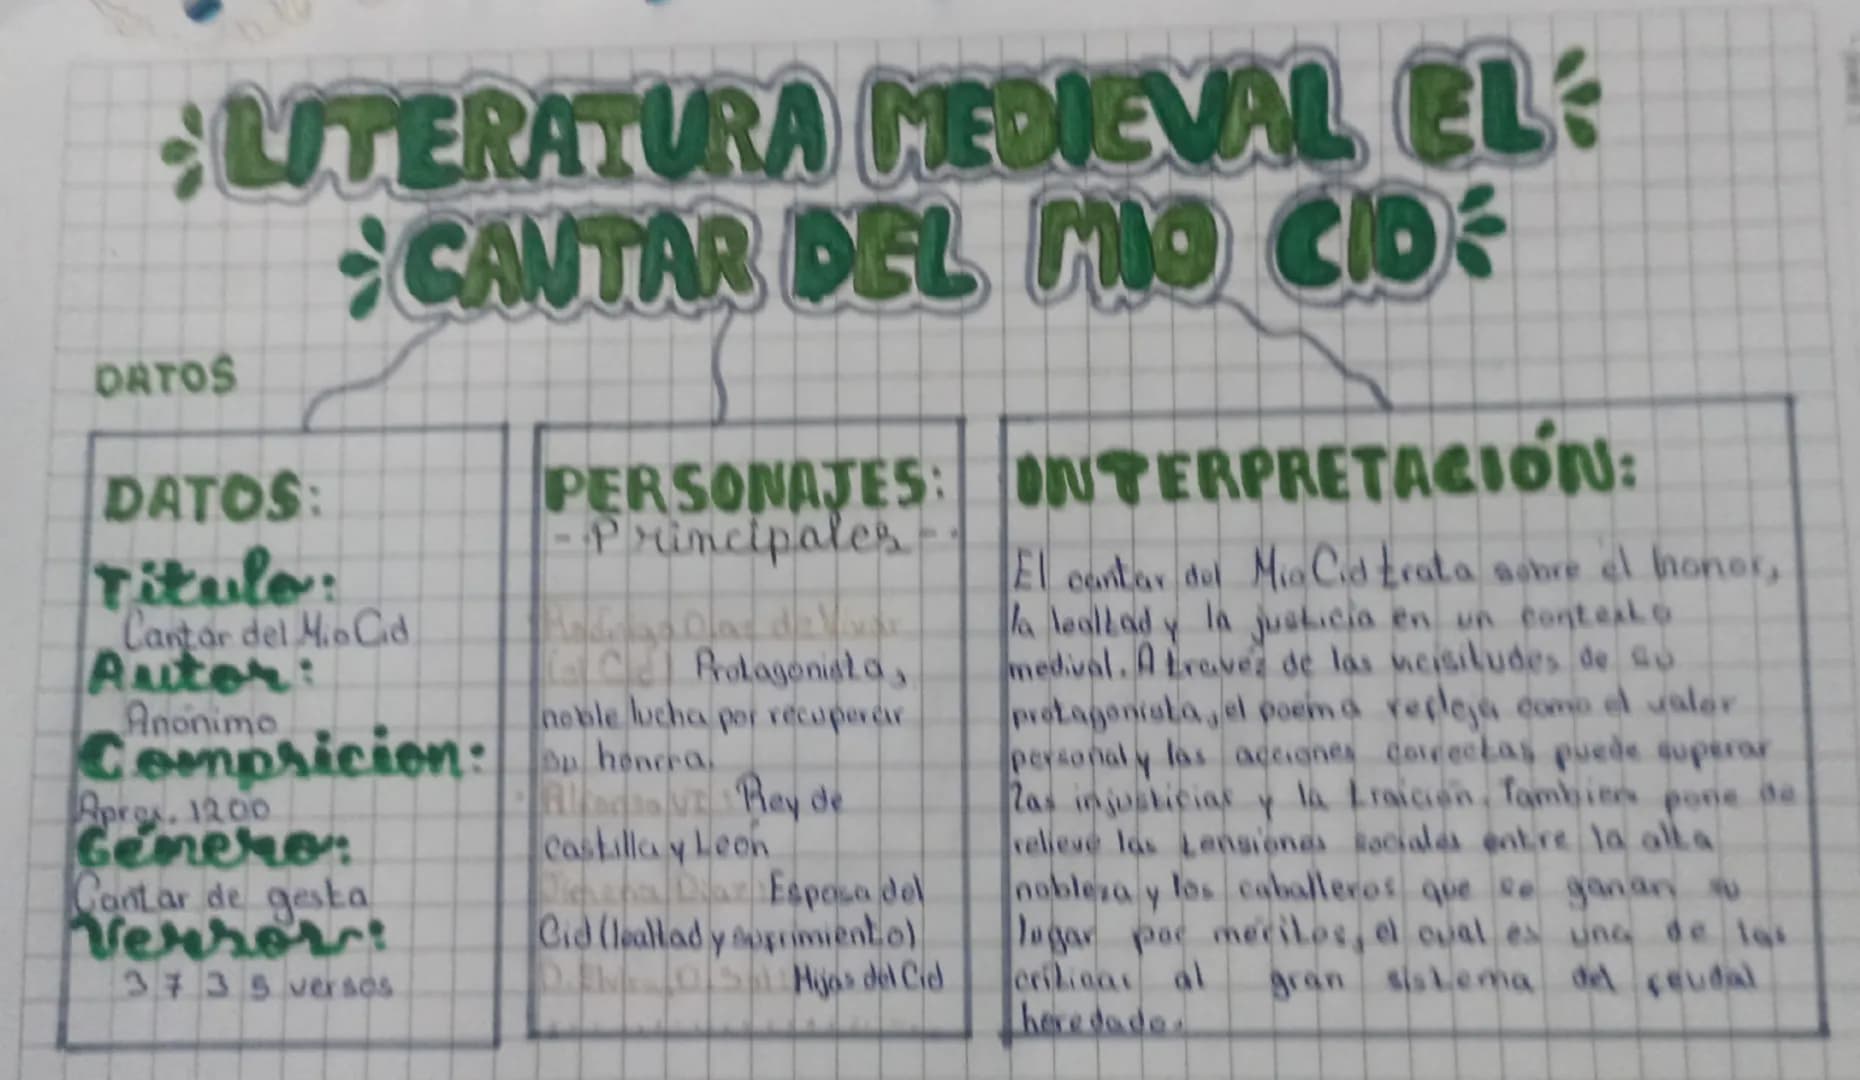 LITERATURA MEDIEVAL EL
CANTAR DEL MIO CID
DATOS
DATOS:
Titulo:
Cantar del Mio Cid
Autor:
Anónimo
Composicion:
Aprox. 1200
Género:
Cantar de gesta
Versos:
3735 versos
PERSONAJES:
- Principales -
Rodrigo Diaz de Vivar
(el Cid) Protagonista,
noble lucha por recuperar
su honrra.
Alfonso VI: Rey de
castilla y León
Jimena Diaz: Esposa del
Cid (lealtad y suprimiento)
D. Elvira, D. Sol: Hijas del Cid
INTERPRETACIÓN:
El cantar del Mio Cid trata sobre el honor,
la lealtad y la justicia en un contexto
medival. A travéz de las vicisitudes de su
protagonista, el poema refleja como el valor
personal y las acciones correctas puede superar
las injusticias y la traición. Tambien pone de
relieve las tensiones sociales entre la alta
nobleza y los caballeros que se ganan su
lugar por méritos, el cual es una de las
criticas al gran sistema del feudal
heredado.